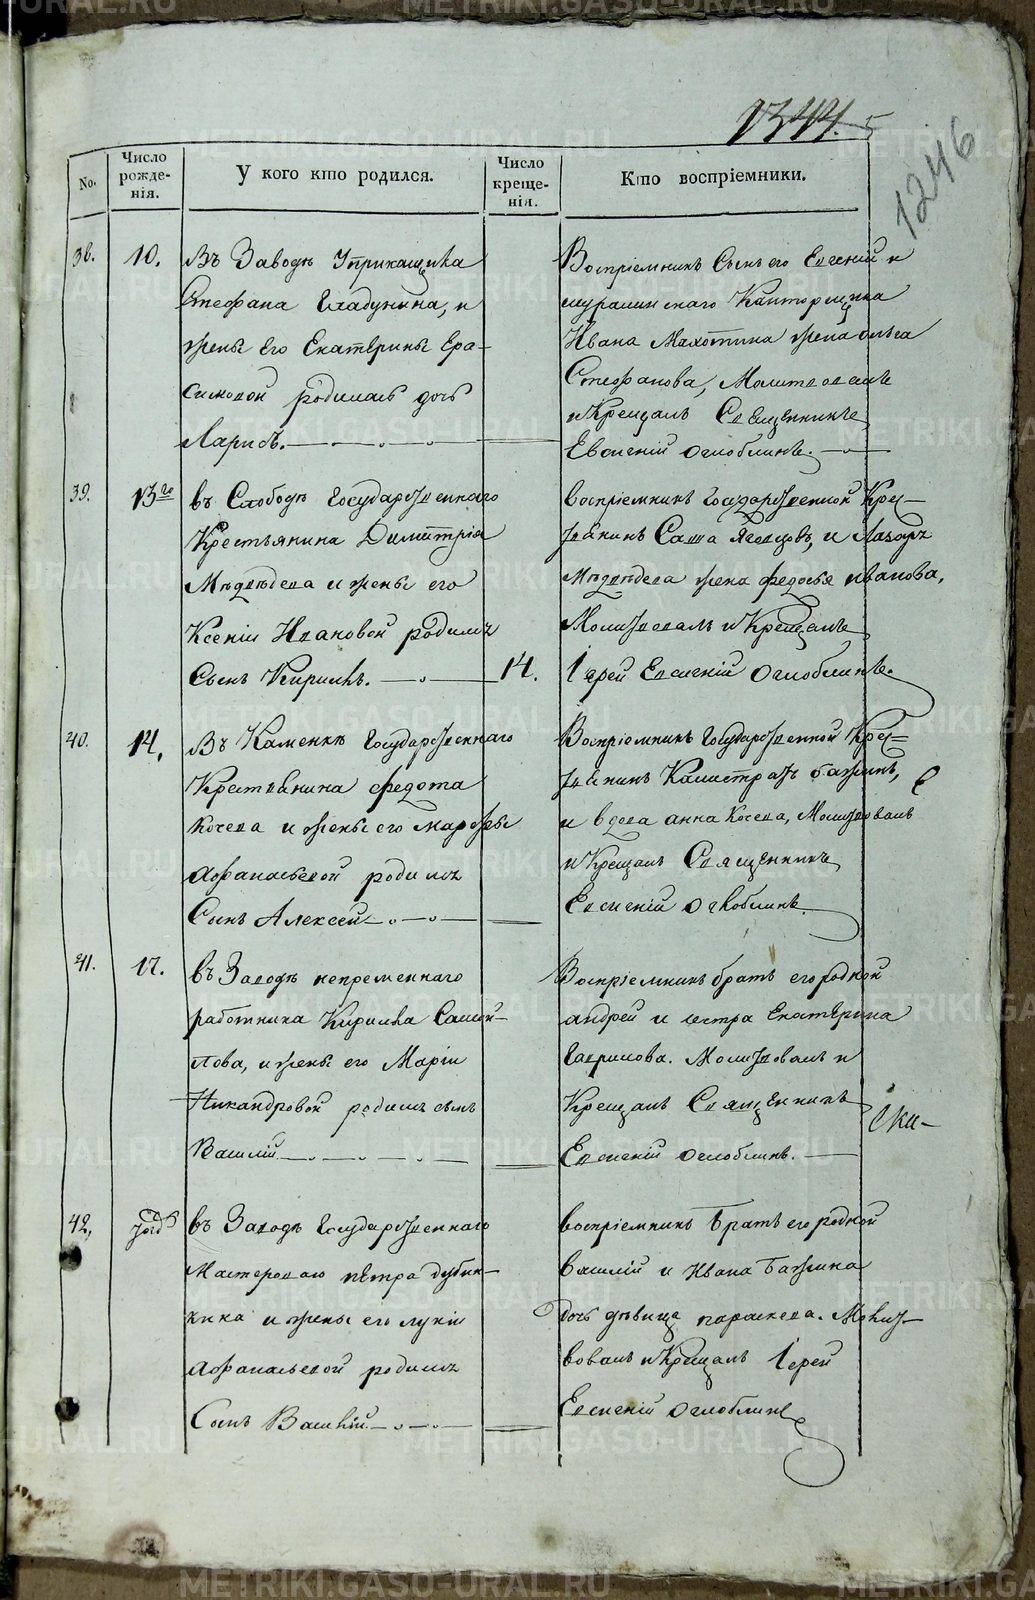 1344. 5
1246
No.
Число рожденія.
У кого кто родился.
Число крещенія.
Кто воспріемники.
38.
10.
Въ Заводѣ Уприкащика
Стефана Гладунина, и
жены его Екатерины Ера-
симовой родилась дочь
Лариса.
Воспріемникъ Сынъ его Евгеній и
Ивана Махотина жена ольга
Стефанова, Молитвовалъ
и Крещалъ Священникъ
Евгеній Оглоблинъ.
39.
13го
въ Слободѣ Государственнаго
Крестьянина Димитрія
Медведева и жены его
Ксеніи Ивановой родился
Сынъ Кирилъ.
14.
воспріемникъ Государственной Крес-
тьянинъ Савва и Лазаря
Медведева жена федосья иванова,
Молитвовалъ и Крещалъ
Іерей Евгеній Оглоблинъ.
40.
14.
Въ Каменкѣ Государственнаго
Крестьянина федота
Кочева и жены его марфы
Афанасьевой родился
Сынъ Алексей
Воспріемникъ Государственной Крес=
тьянинъ Калистратъ бажинъ,
и вдова анна Кочева, Молитвовалъ
и Крещалъ Священникъ
Евгеній Оглоблинъ.
41.
17.
въ Заводѣ непременнаго
работника Кирилва Самой-
лова, и жены его Маріи
Никандровой родился сынъ
Василій
Воспріемникъ братъ его родной
андрей и сестра Екатерина
Гаврилова. Молитвовалъ и
Крещалъ Священникъ
Евгеній Оглоблинъ.
42,
въ Заводѣ Государственнаго
Мастероваго пѣтра дубин-
кина и жены его лукіи
Афанасьевой родился
Сынъ Василій
воспріемникъ Братъ его родной
василій и Ивана Бажина
дочь дѣвица параскева. Молит-
вовалъ и Крещалъ Іерей
Евгеній Оглоблинъ
METRIKI.GASO-URAL.RU